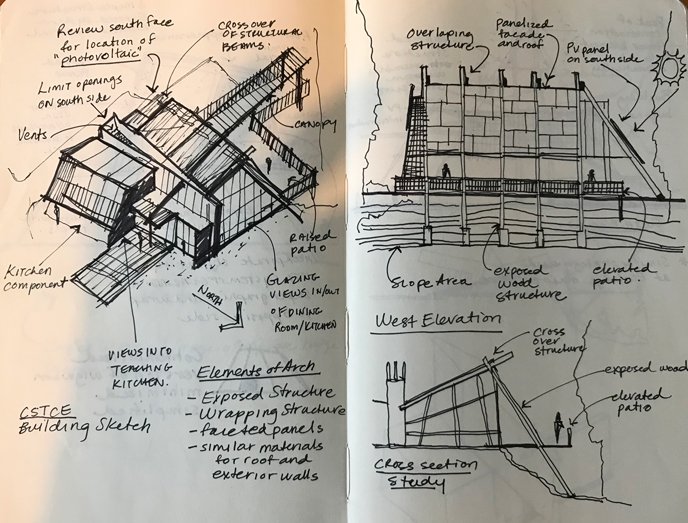 Review south face
for location of
"photovoltaic"
CROSS OVER
OF STRUCTURAL
BEAMS.
Limit openings
on south side
Vents
CANOPY
RAISED
patio
Kitchen
component
GLAZING
VIEWS IN/OUT
OF DINING
ROOM/KITCHEN
NORTH
VIEWS INTO
TEACHING
KITCHEN.
CSTCE
Building Sketch
Elements of Arch
- Exposed Structure
- Wrapping Structure
- faceted panels
- similar materials
for roof and
exterior walls
Overlaping
structure
panelized
facade
and roof
PV panel
on south side
Slope Area
exposed
wood
structure
elevated
patio.
West Elevation
cross
over
structure
exposed wood
elevated
patio
Cross section
Study